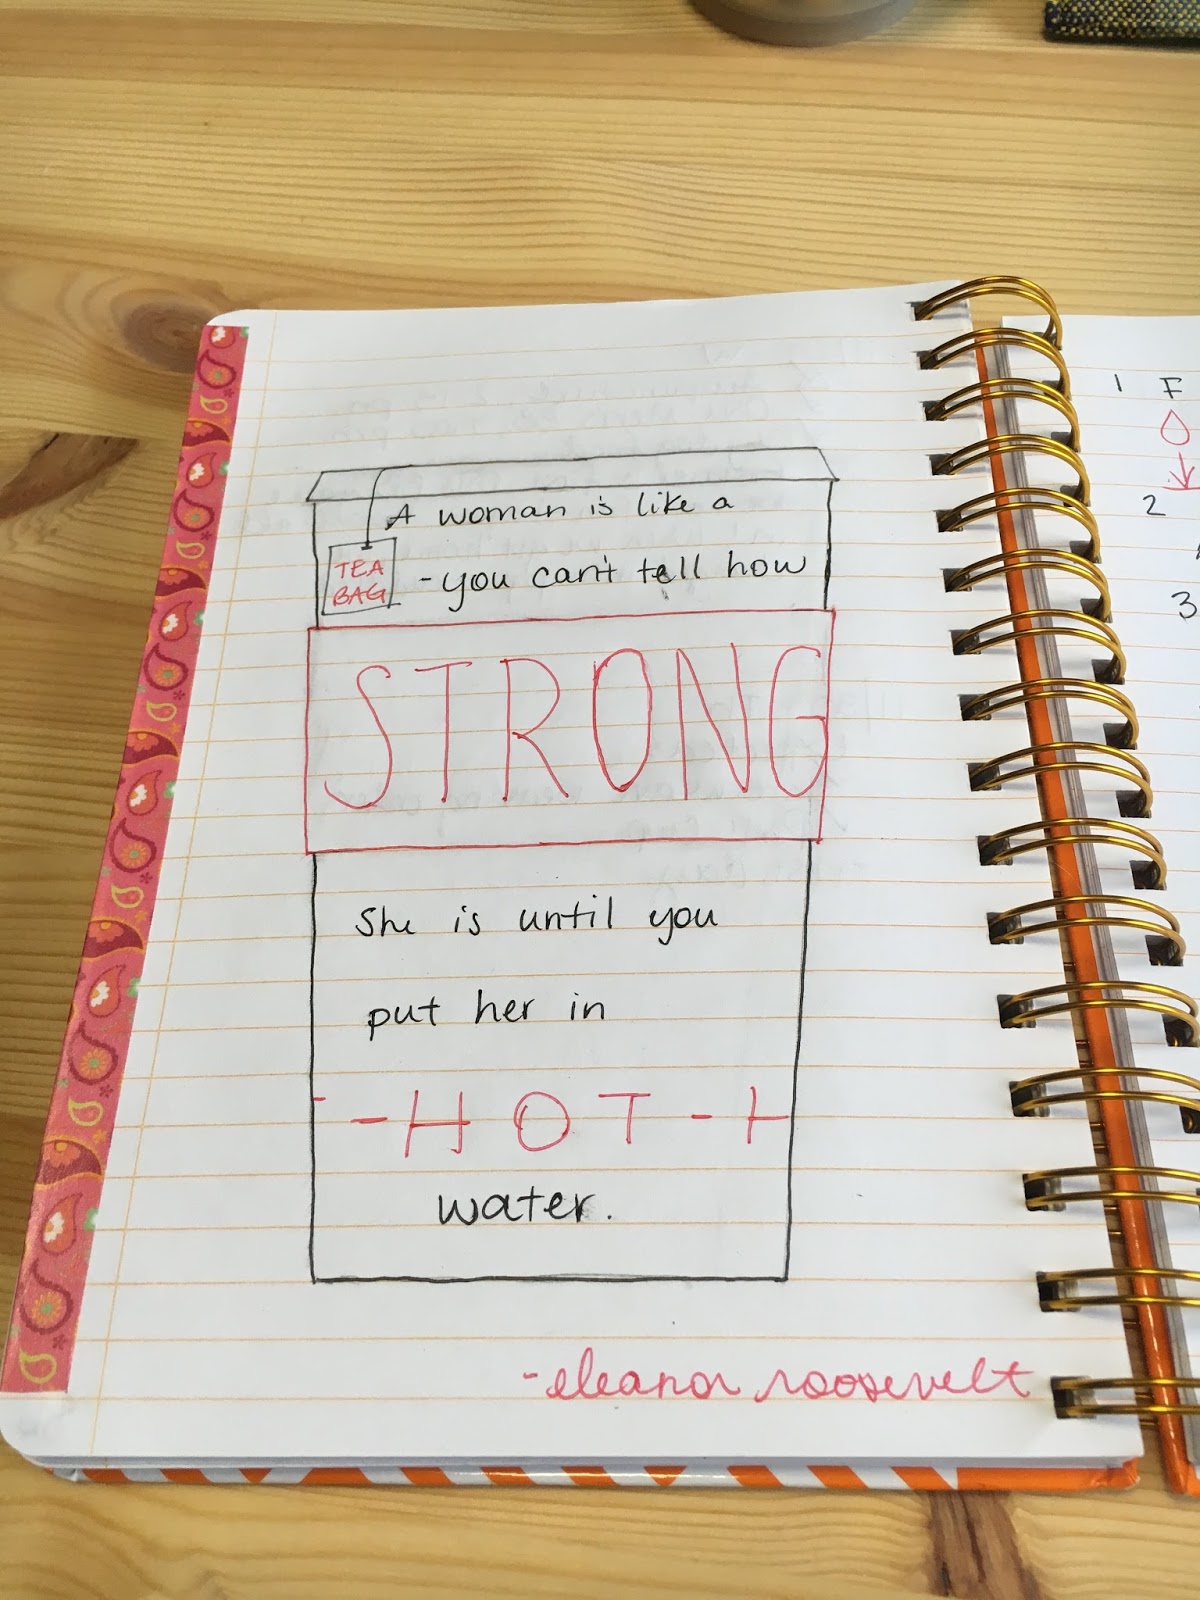 A woman is like a
TEA
BAG
-you can't tell how
STRONG
She is until you
put her in
- HOT -
water.
-eleanor roosevelt
1 F
2
3